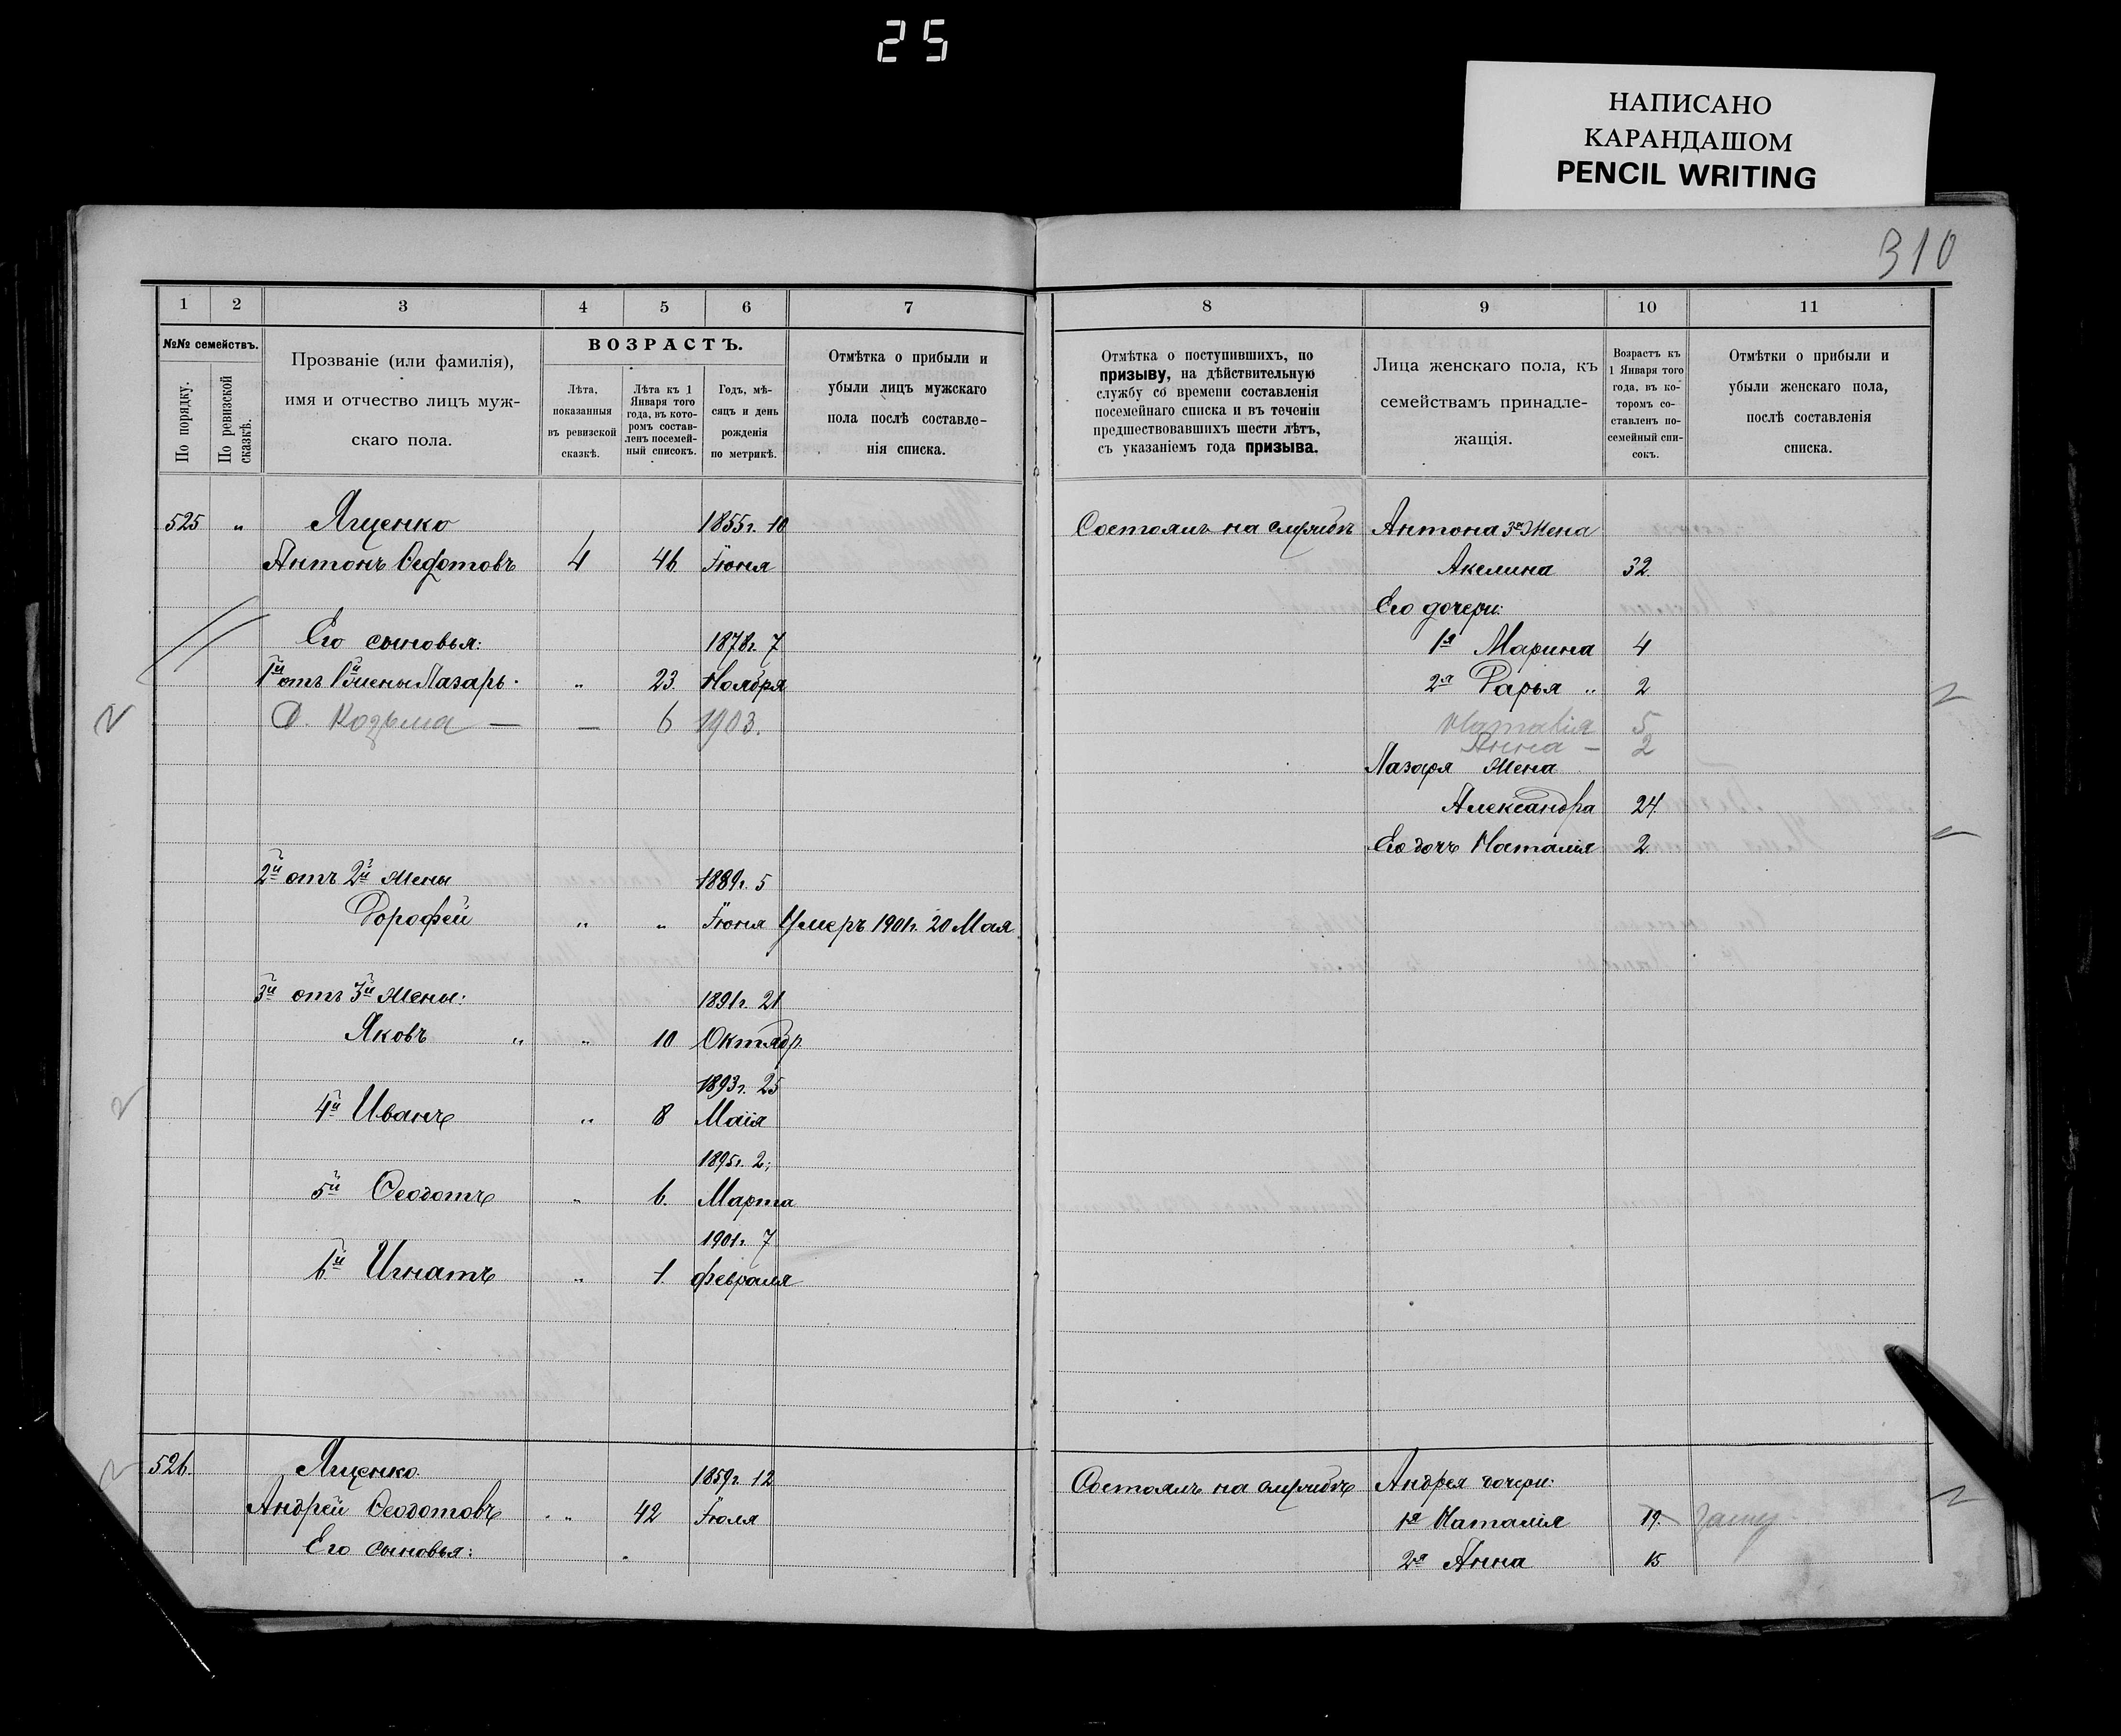 25
НАПИСАНО
КАРАНДАШОМ
PENCIL WRITING
310
1 2 3 4 5 6 7
№№ семействъ.
По порядку.
По ревизской сказкѣ.
Прозваніе (или фамилія),
имя и отчество лицъ муж-
скаго пола.
ВОЗРАСТЪ.
Лѣта,
показанныя
въ ревизской
сказкѣ.
Лѣта къ 1
Января того
года, въ кото-
ромъ состав-
ленъ посемей-
ный списокъ.
Годъ, мѣ-
сяцъ и день
рожденія
по метрикѣ.
Отмѣтка о прибыли и
убыли лицъ мужскаго
пола послѣ составле-
нія списка.
525 „ Ященко 1855г. 10
Антонъ Федотовъ 4 46 Іюня
Его сыновья: 1878г. 7
1й отъ 1й жены Лазарь „ 23. Ноября
С. Козьма — — 6 1903.
2й отъ 2й жены 1889г. 5
Дорофей „ „ Іюня Умеръ 1901г. 20 Мая
3й отъ 3й жены: 1891г. 21
Яковъ „ „ 10 Октябр.
1893г. 25
4й Иванъ „ 8 Маія
1895г. 2;
5й Ѳеодотъ „ 6. Марта
1901г. 7
6й Игнатъ „ 1. февраля
526. Ященко. 1859г. 12
Андрей Ѳеодотовъ „ 42 Іюля
Его сыновья:
8 9 10 11
Отмѣтка о поступившихъ, по
призыву, на дѣйствительную
службу со времени составленія
посемейнаго списка и въ теченіи
предшествовавшихъ шести лѣтъ,
съ указаніемъ года призыва.
Лица женскаго пола, къ
семействамъ принадле-
жащія.
Возрастъ къ
1 Января того
года, въ ко-
торомъ со-
ставленъ по-
семейный спи-
сокъ.
Отмѣтки о прибыли и
убыли женскаго пола,
послѣ составленія
списка.
Состоялъ на службѣ Антона 3я Жена
Акелина 32.
Его дочери:
1я Марина 4
2я Дарья „ 2
Наталія 5
Анна — 2
Лазаря жена
Александра 24.
Его дочь Наталія 2.
Состоялъ на службѣ Андрея дочери:
1я Наталія 19.
2я Анна 15